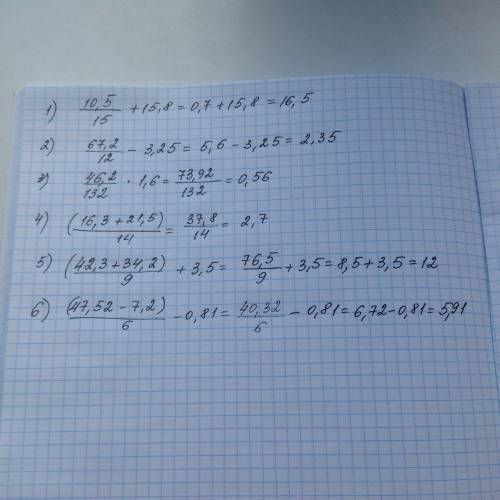 1) 10,5/15 + 15,8 = 0,7 + 15,8 = 16,5
2) 67,2/12 - 3,25 = 5,6 - 3,25 = 2,35
3) 46,2/132 · 1,6 = 73,92/132 = 0,56
4) (16,3 + 21,5)/14 = 37,8/14 = 2,7
5) (42,3 + 34,2)/9 + 3,5 = 76,5/9 + 3,5 = 8,5 + 3,5 = 12
6) (47,52 - 7,2)/6 - 0,81 = 40,32/6 - 0,81 = 6,72 - 0,81 = 5,91